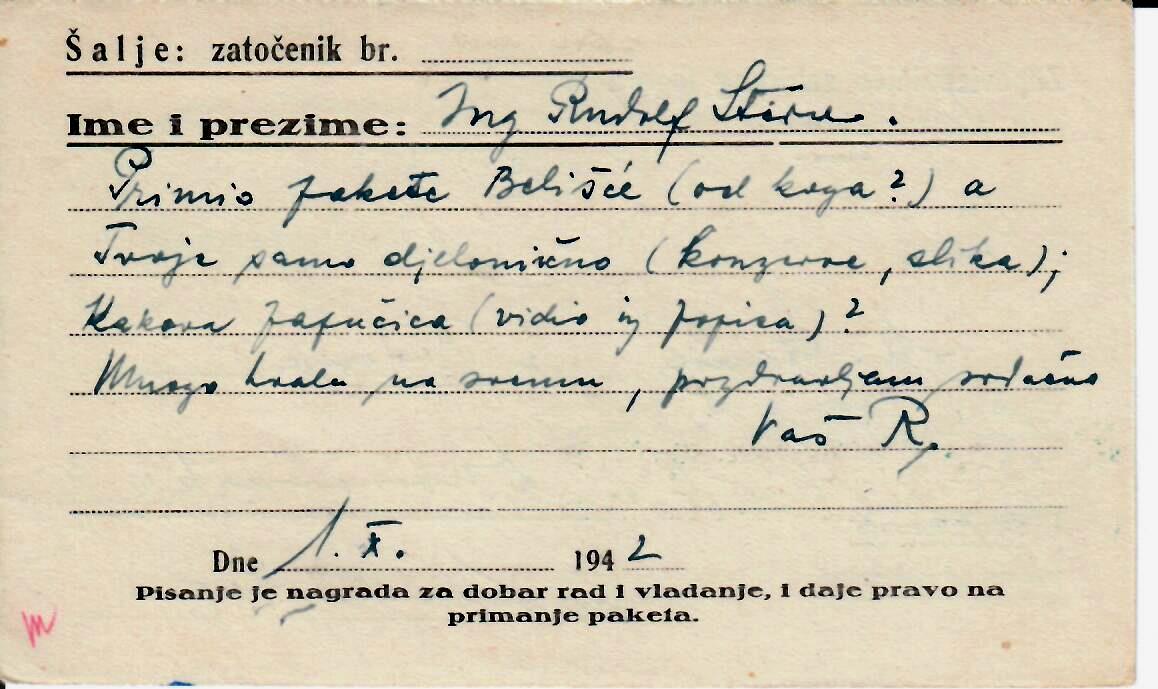 Šalje: zatočenik br.
Ime i prezime: Ing Rudolf Stern.
Primio pakete Belišće (od koga?) a
Tvoje samo djelomično (konzerve, slika);
Kakova papučica (vidio iz popisa)?
Mnogo hvala na svemu, pozdravljam srdačno
Vaš R.
Dne 1. X. 1942
Pisanje je nagrada za dobar rad i vladanje, i daje pravo na
primanje paketa.
m